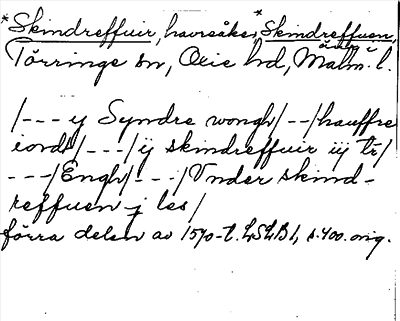 *Skindreffuir, havreåker, *Skindreffuen, äng
Törringe sn, Oxie hd, Malm. l.
/--- ij Syndre wongh/--/hauffre
iord/---/ij skindreffuir iij tr/
---/Engh/---/Vnder skind-
reffuen j les/
förra delen av 1570-t. LSLB 1, s. 400. orig.